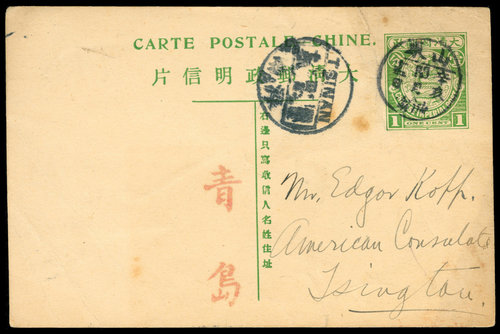 CARTE POSTALE CHINE.
片信明政郵清大
右邊只寫收信人名姓住址
青島
TSINAN
1 ONE CENT 1
Mr. Edgar Kopp.
American Consulate
Tsingtau.